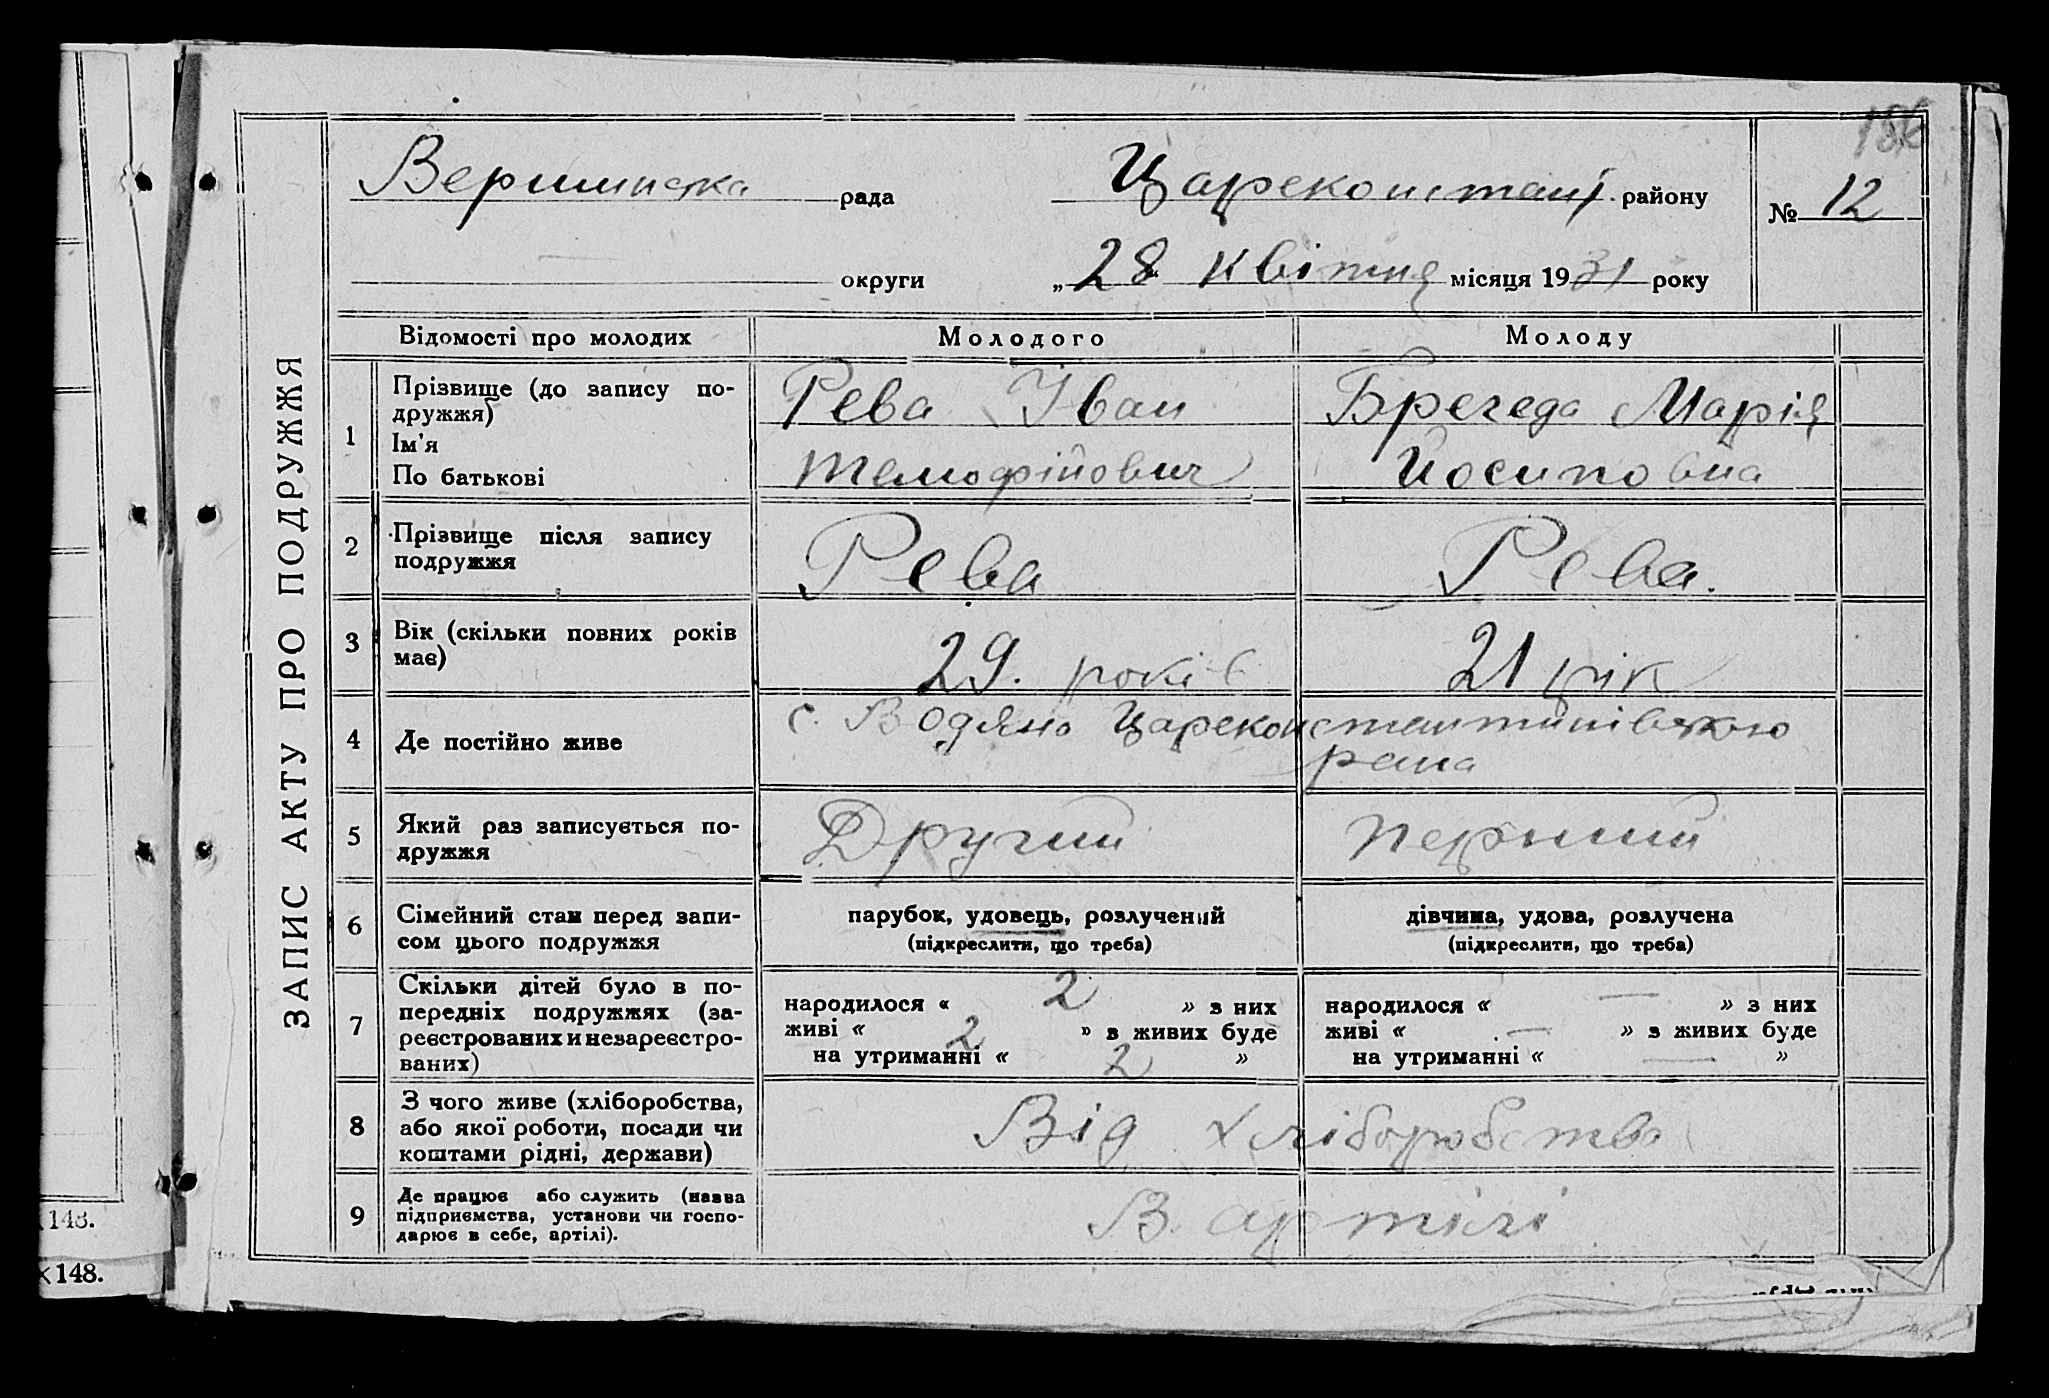 186
Вершинська рада Цареконстант. району № 12
округи „ 28 квітня місяця 1931 року
ЗАПИС АКТУ ПРО ПОДРУЖЖЯ
Відомості про молодих Молодого Молоду
1 Прізвище (до запису по-
дружжя)
Ім'я
По батькові
Рева Іван
Темофійович
Брегеда Марія
Йосиповна
2 Прізвище після запису
подружжя
Рева Рева.
3 Вік (скільки повних років
має)
29. років 21 рік
4 Де постійно живе
с. Водяно Цареконстантинівского
рана
5 Який раз записується по-
дружжя
Другий Перший
6 Сімейний стан перед запи-
сом цього подружжя
парубок, удовець, розлучений
(підкреслити, що треба)
дівчина, удова, розлучена
(підкреслити, що треба)
7 Скільки дітей було в по-
передніх подружжях (за-
реєстрованих и незареєстро-
ваних)
народилося « 2 » з них
живі « 2 » з живих буде
на утриманні « 2 »
народилося « — » з них
живі « — » з живих буде
на утриманні « — »
8 З чого живе (хліборобства,
або якої роботи, посади чи
коштами рідні, держави)
Від хліборобства
9 Де працює або служить (назва
підприємства, установи чи госпо-
дарює в себе, артілі).
В артілі
148.
×148.